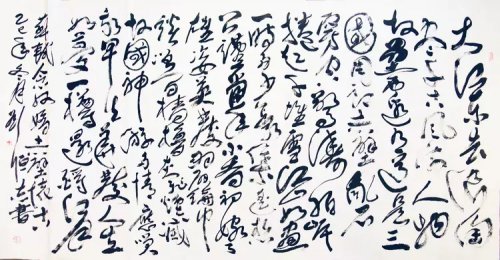 大江东去浪淘
尽千古风流人物
故垒西边人道是三
国周郎赤壁乱石
穿空惊涛拍岸
捲起千堆雪江山如画
一时多少豪杰遥想
公瑾当年小乔初嫁了
雄姿英发羽扇纶巾
谈笑间樯橹灰飞烟灭
故国神游多情应笑
我早生华发人生
如梦一樽还酹江月
苏轼念奴娇赤壁怀古
年冬月书